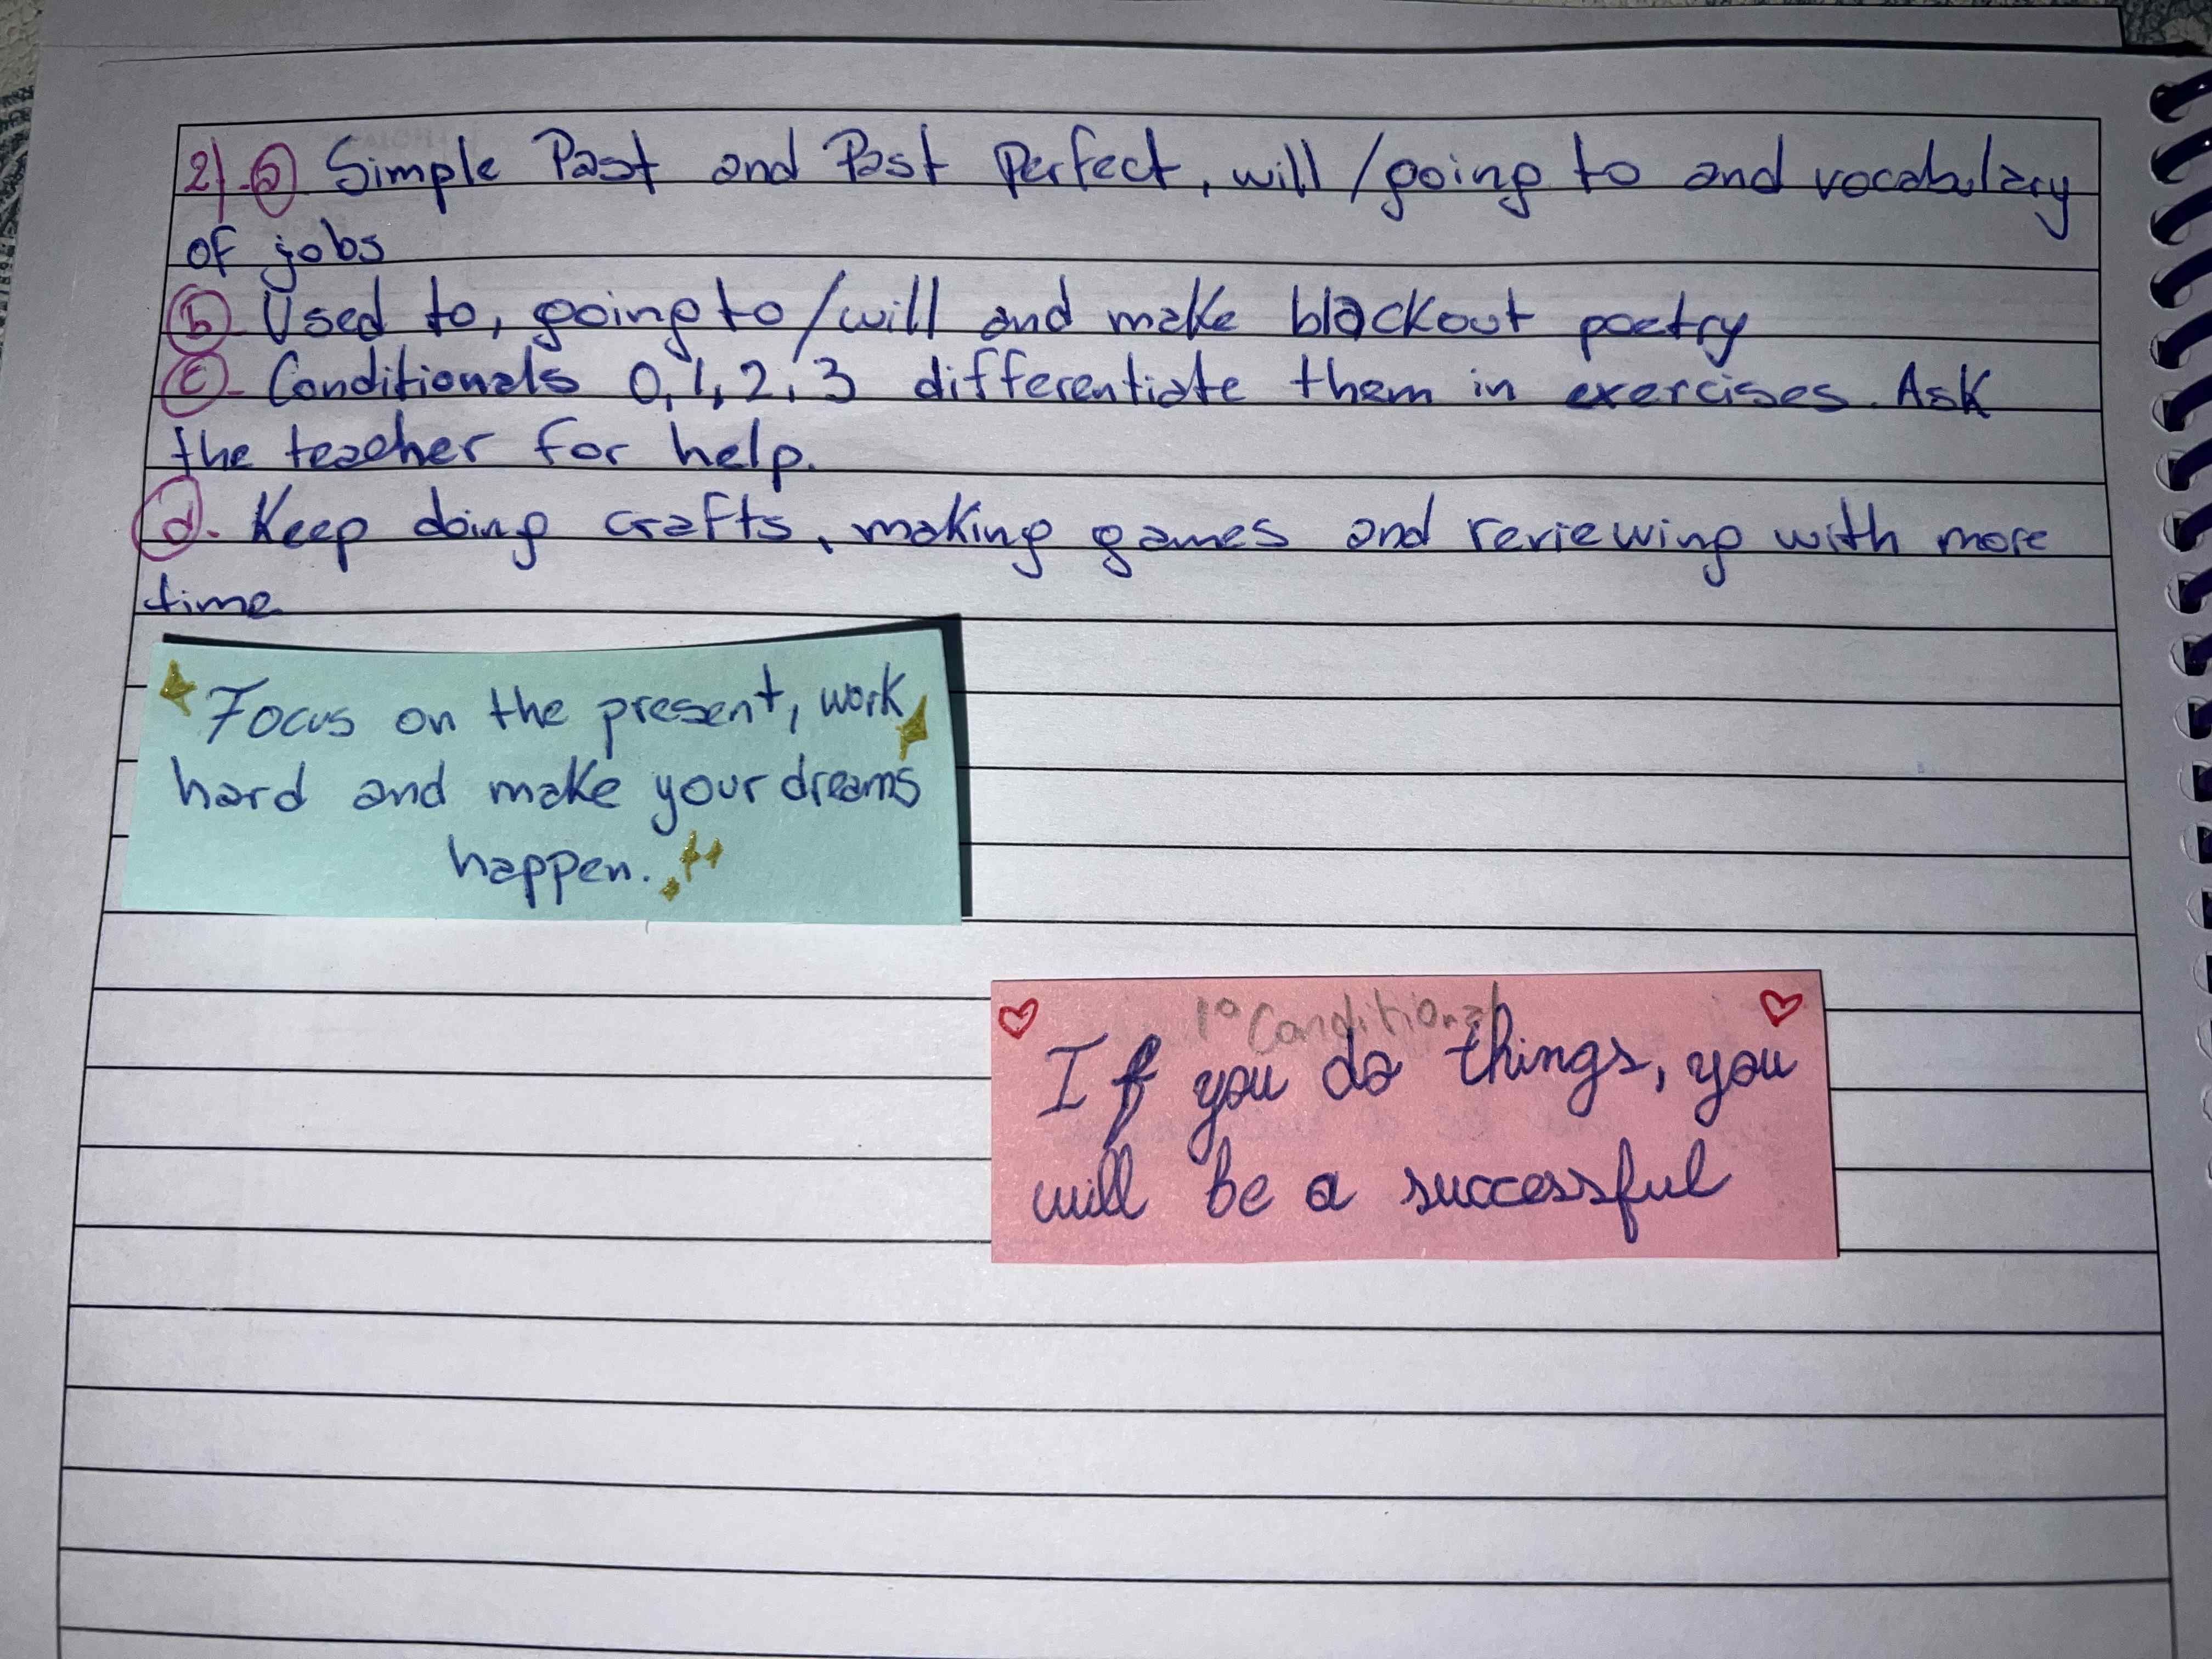 2)-a) Simple Past and Past Perfect, will/going to and vocabulary
of jobs
b) Used to, going to/will and make blackout poetry
c)- Conditionals 0,1,2,3 differentiate them in exercises. Ask
the teacher for help.
d). Keep doing crafts, making games and reviewing with more
time
Focus on the present, work
hard and make your dreams
happen.
1º Conditional
If you do things, you
will be a successful